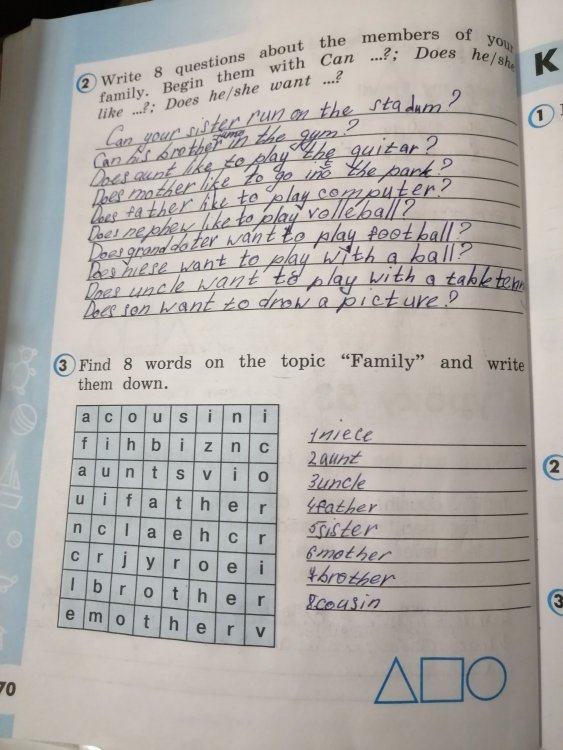 2 Write 8 questions about the members of your
family. Begin them with Can ...?; Does he/she
like ...?; Does he/she want ...?
Can your sister run on the stadum?
Can his brother jump in the gym?
Does aunt like to play the guitar?
Does mother like to go into the park?
Does father like to play computer?
Does nephew like to play volleball?
Does granddoter want to play football?
Does niese want to play with a ball?
Does uncle want to play with a table tenn
Does son want to drow a picture?
3 Find 8 words on the topic “Family” and write
them down.
a c o u s i n i
f i h b i z n c
a u n t s v i o
u i f a t h e r
n c l a e h c r
c r j y r o e i
l b r o t h e r
e m o t h e r v
1 niece
2 aunt
3 uncle
4 father
5 sister
6 mother
7 brother
8 cousin
70
K
1
2
3